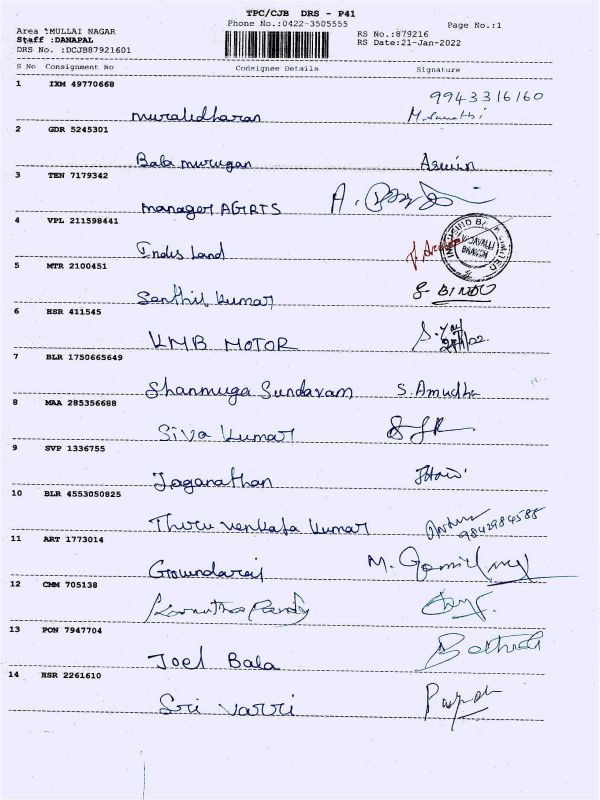 TPC/CJB DRS - P41
Phone No.:0422-3505555
Page No.:1
Area :MULLAI NAGAR
Staff :DANAPAL
DRS No. :DCJB87921601
RS No.:879216
RS Date:21-Jan-2022
S No Consignment No Consignee Details Signature
1 IXM 49770668
muralidharan 9943316160
2 GDR 5245301
Bala murugan Aswin
3 TEN 7179342
manager AGIRTS A.
4 VPL 211598441
Indus Land
5 MTR 2100451
Senthil Kumar BINDO
6 HSR 411545
KMB MOTOR
7 BLR 1750665649
Shanmuga Sundaram S. Amudha
8 MAA 285356688
Siva Kumar
9 SVP 1336755
Jaganathan
10 BLR 4553050825
Thiru Venkata Kumar 9842984588
11 ART 1773014
Goundaraj M.
12 CMM 705138
13 PON 7947704
Joel Bala
14 HSR 2261610
Sri Varri